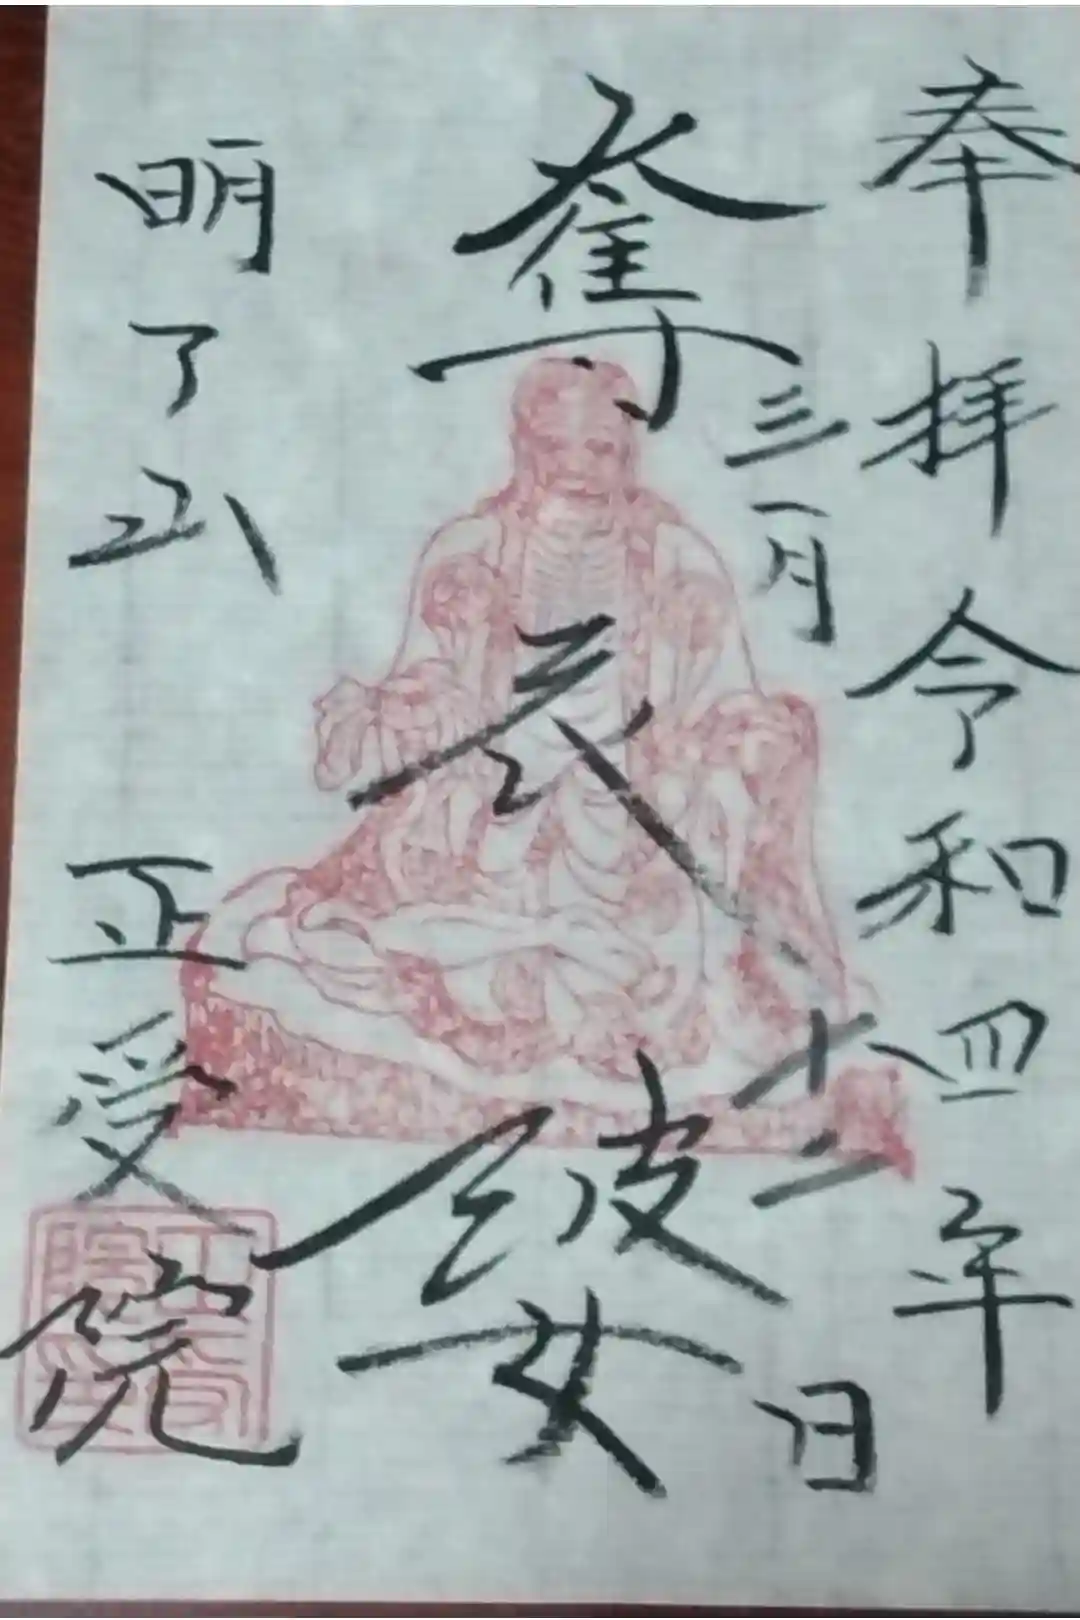 奉拝 令和四年
三月十二日
奪衣婆
明了山
正受院